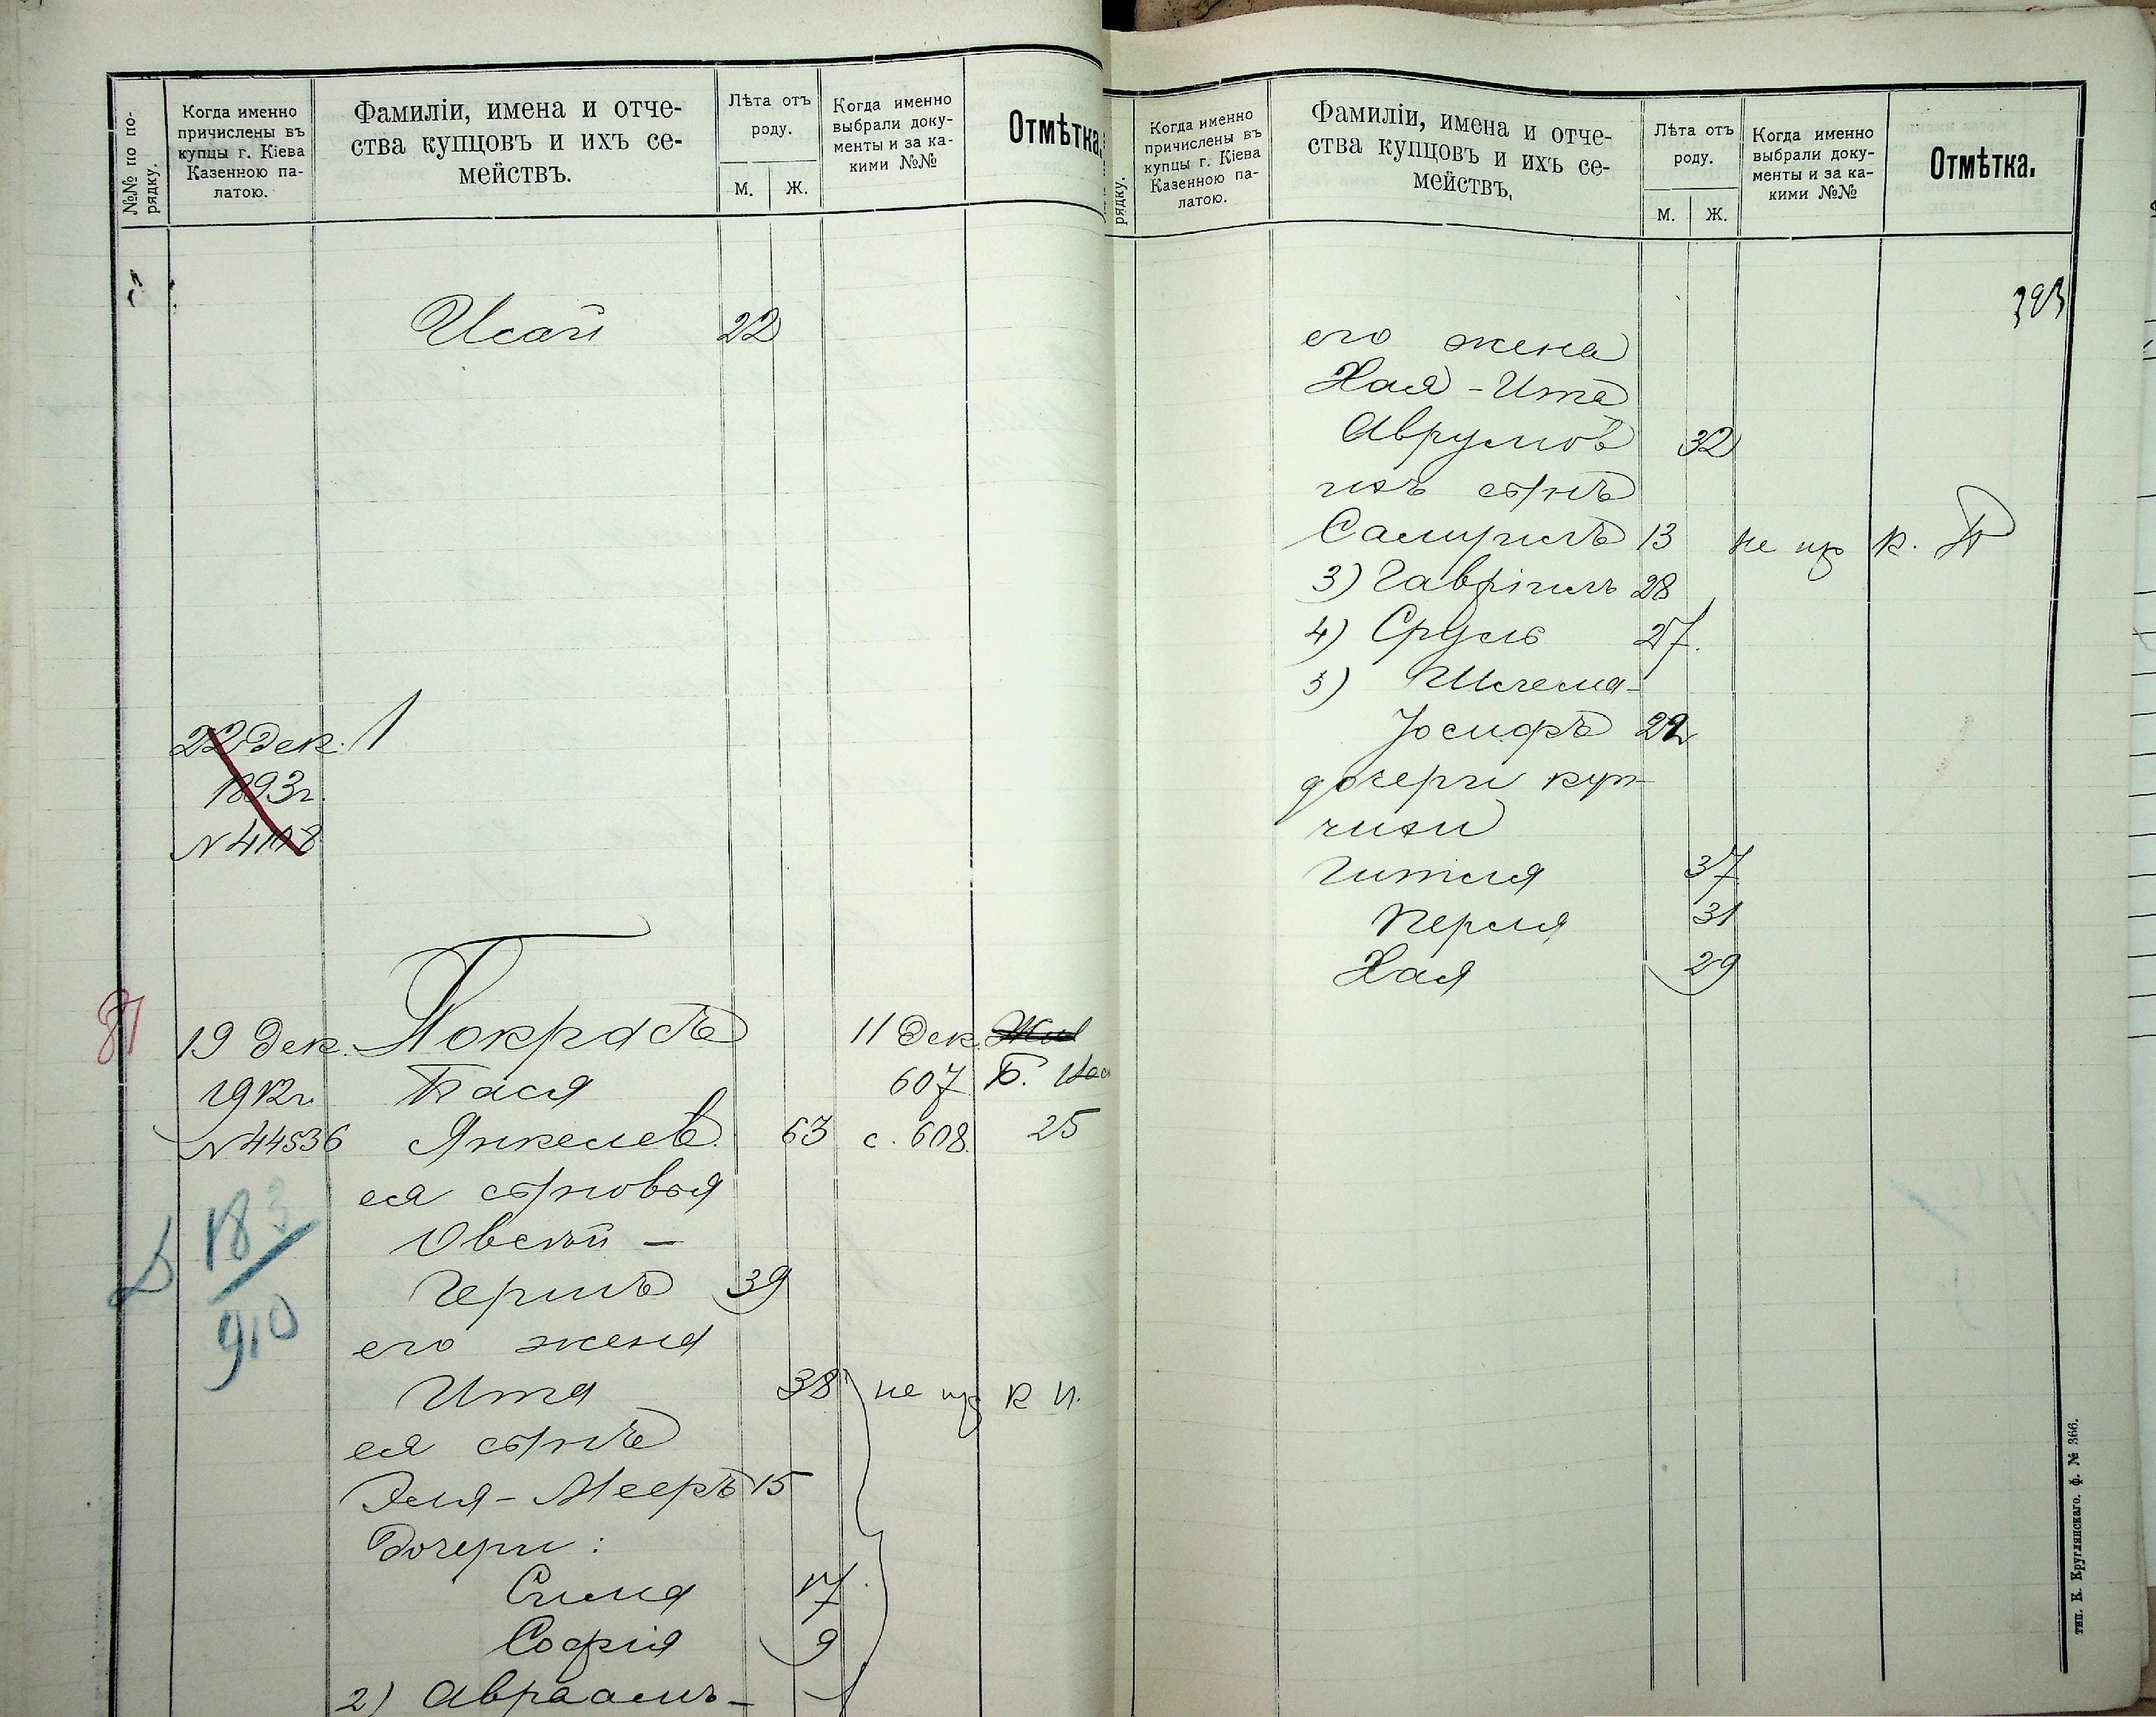 №№ по по-
рядку.
Когда именно
причислены въ
купцы г. Кіева
Казенною па-
латою.
Фамиліи, имена и отче-
ства купцовъ и ихъ се-
мействъ.
Лѣта отъ
роду.
м. ж.
Когда именно
выбрали доку-
менты и за ка-
кими №№
Отмѣтка.
Исай 22
22 Дек.
1893 г.
N 4118
87
19 Дек. Покрасъ 11 Дек.
1912 г. Бася 607 Б.
N 44536 Янкелев. 63 с. 608 25
ея сыновья
Овсѣй -
Гершъ 39
183
910
его жена
Итя 38 не пр к п.
ея сынъ
Эля - Мееръ 15
Дочери:
Сима 17
Софія 9
2) Авраамъ -
рядку.
Когда именно
причислены въ
купцы г. Кіева
Казенною па-
латою.
Фамиліи, имена и отче-
ства купцовъ и ихъ се-
мействъ.
Лѣта отъ
роду.
м. ж.
Когда именно
выбрали доку-
менты и за ка-
кими №№
Отмѣтка.
его жена
Хая - Ита
Аврумов 32
ихъ сынъ
Самуилъ 13 не пр к. П
3) Гавріилъ 28
4) Сруль 27.
5) Шлема-
Іосифъ 22
дочери куп-
чихи
Гитля 37
Перля 31
Хая 29
тип. К. Круглянскаго. ф. № 366.